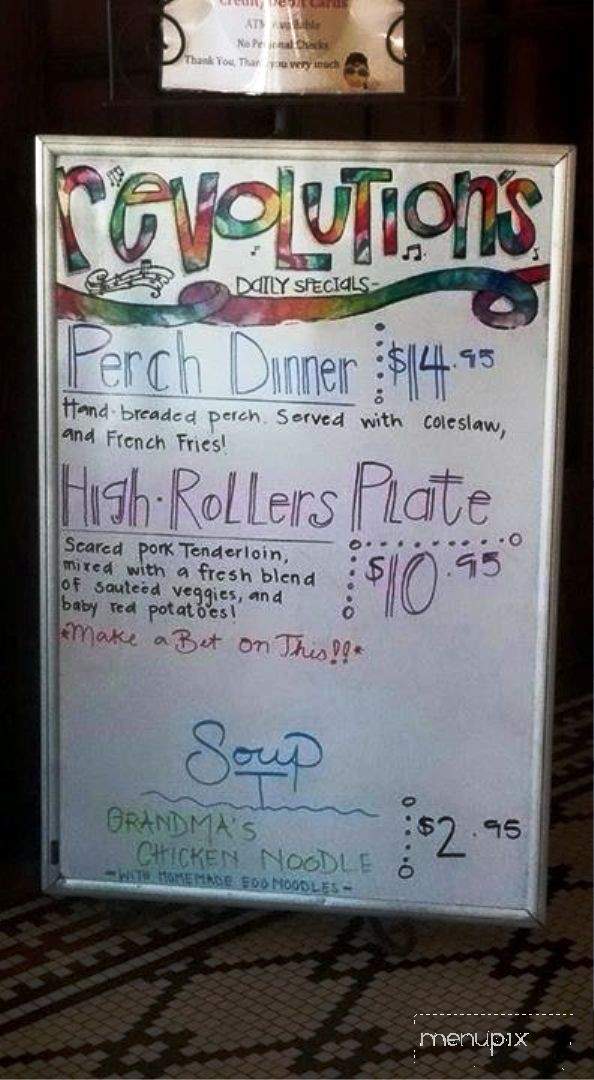 Credit/Debit Cards
ATM Available
No Personal Checks
Thank You, Thank you very much
revolution's
DAILY SPECIALS-
Perch Dinner $14.95
Hand-breaded perch. Served with coleslaw,
and French Fries!
High-Rollers Plate
Seared pork Tenderloin, $10.95
mixed with a fresh blend
of sauteéd veggies, and
baby red potatoes!
*Make a Bet on This!!*
Soup
GRANDMA'S $2.95
CHICKEN NOODLE
-WITH HOMEMADE EGG NOODLES-
menupix